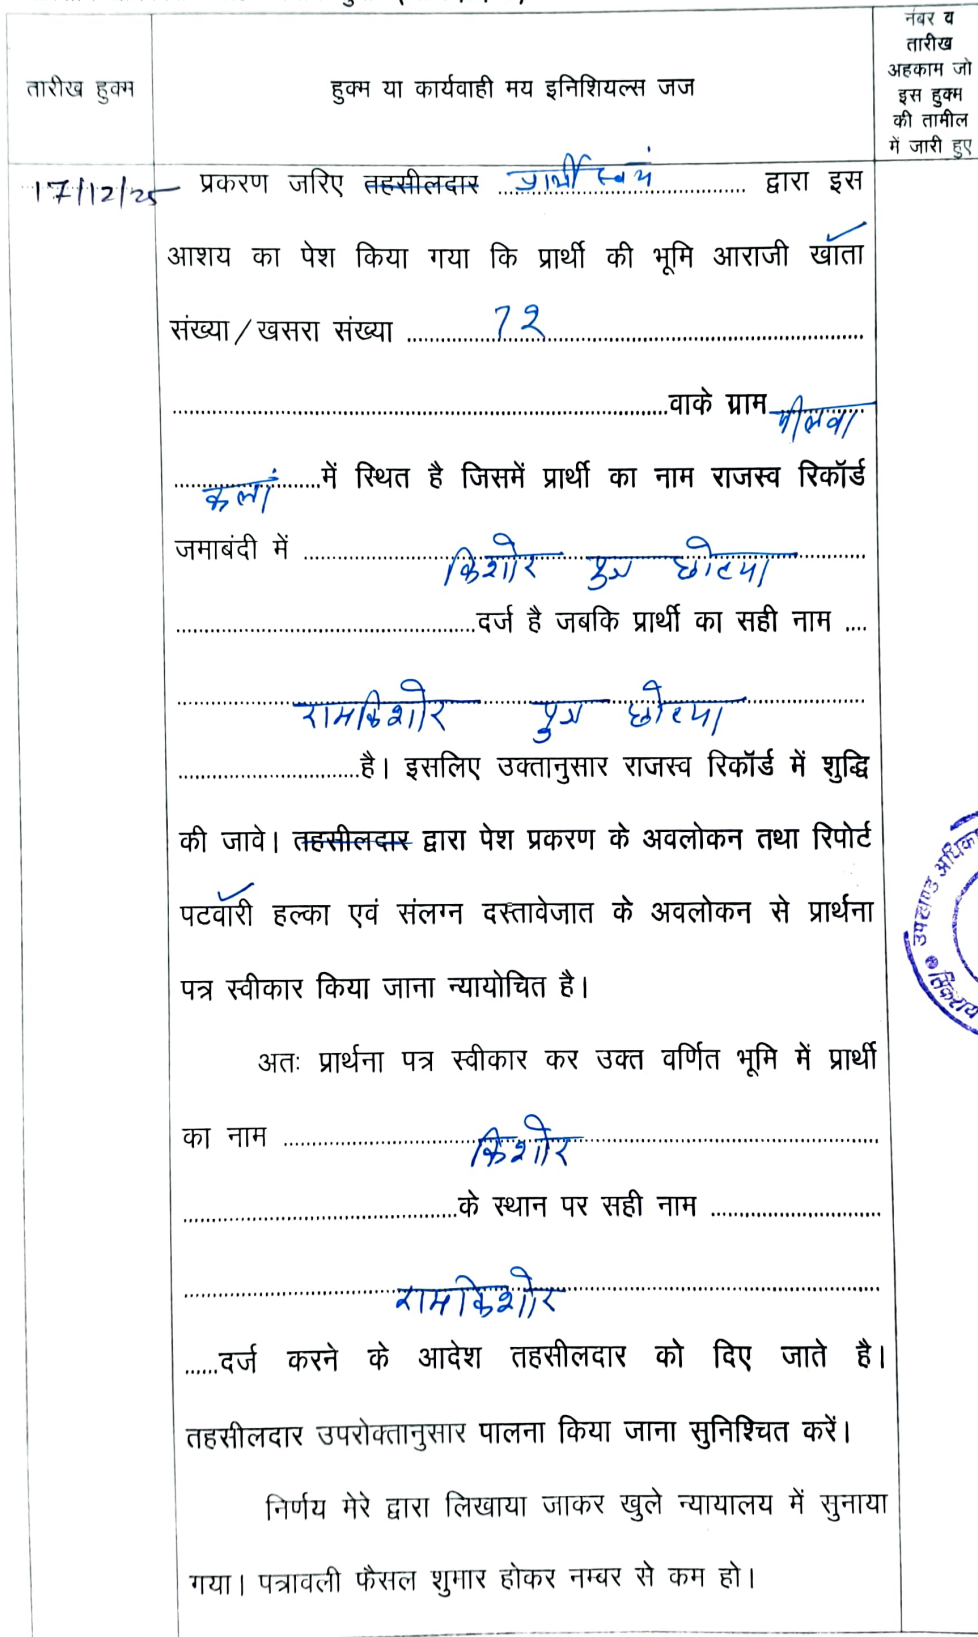 तारीख हुक्म
हुक्म या कार्यवाही मय इनिशियल्स जज
नंबर व
तारीख
अहकाम जो
इस हुक्म
की तामील
में जारी हुए
17/12/25
प्रकरण जरिए तहसीलदार प्रार्थी स्वयं द्वारा इस
आशय का पेश किया गया कि प्रार्थी की भूमि आराजी खाता
संख्या/खसरा संख्या 72
वाके ग्राम पीलवा
कलां में स्थित है जिसमें प्रार्थी का नाम राजस्व रिकॉर्ड
जमाबंदी में किशोर पुत्र छोट्या
दर्ज है जबकि प्रार्थी का सही नाम
रामकिशोर पुत्र छोट्या
है। इसलिए उक्तानुसार राजस्व रिकॉर्ड में शुद्धि
की जावे। तहसीलदार द्वारा पेश प्रकरण के अवलोकन तथा रिपोर्ट
पटवारी हल्का एवं संलग्न दस्तावेजात के अवलोकन से प्रार्थना
पत्र स्वीकार किया जाना न्यायोचित है।
अतः प्रार्थना पत्र स्वीकार कर उक्त वर्णित भूमि में प्रार्थी
का नाम किशोर
के स्थान पर सही नाम
रामकिशोर
दर्ज करने के आदेश तहसीलदार को दिए जाते है।
तहसीलदार उपरोक्तानुसार पालना किया जाना सुनिश्चित करें।
निर्णय मेरे द्वारा लिखाया जाकर खुले न्यायालय में सुनाया
गया। पत्रावली फैसल शुमार होकर नम्बर से कम हो।
उपखण्ड अधिका
सिकराय